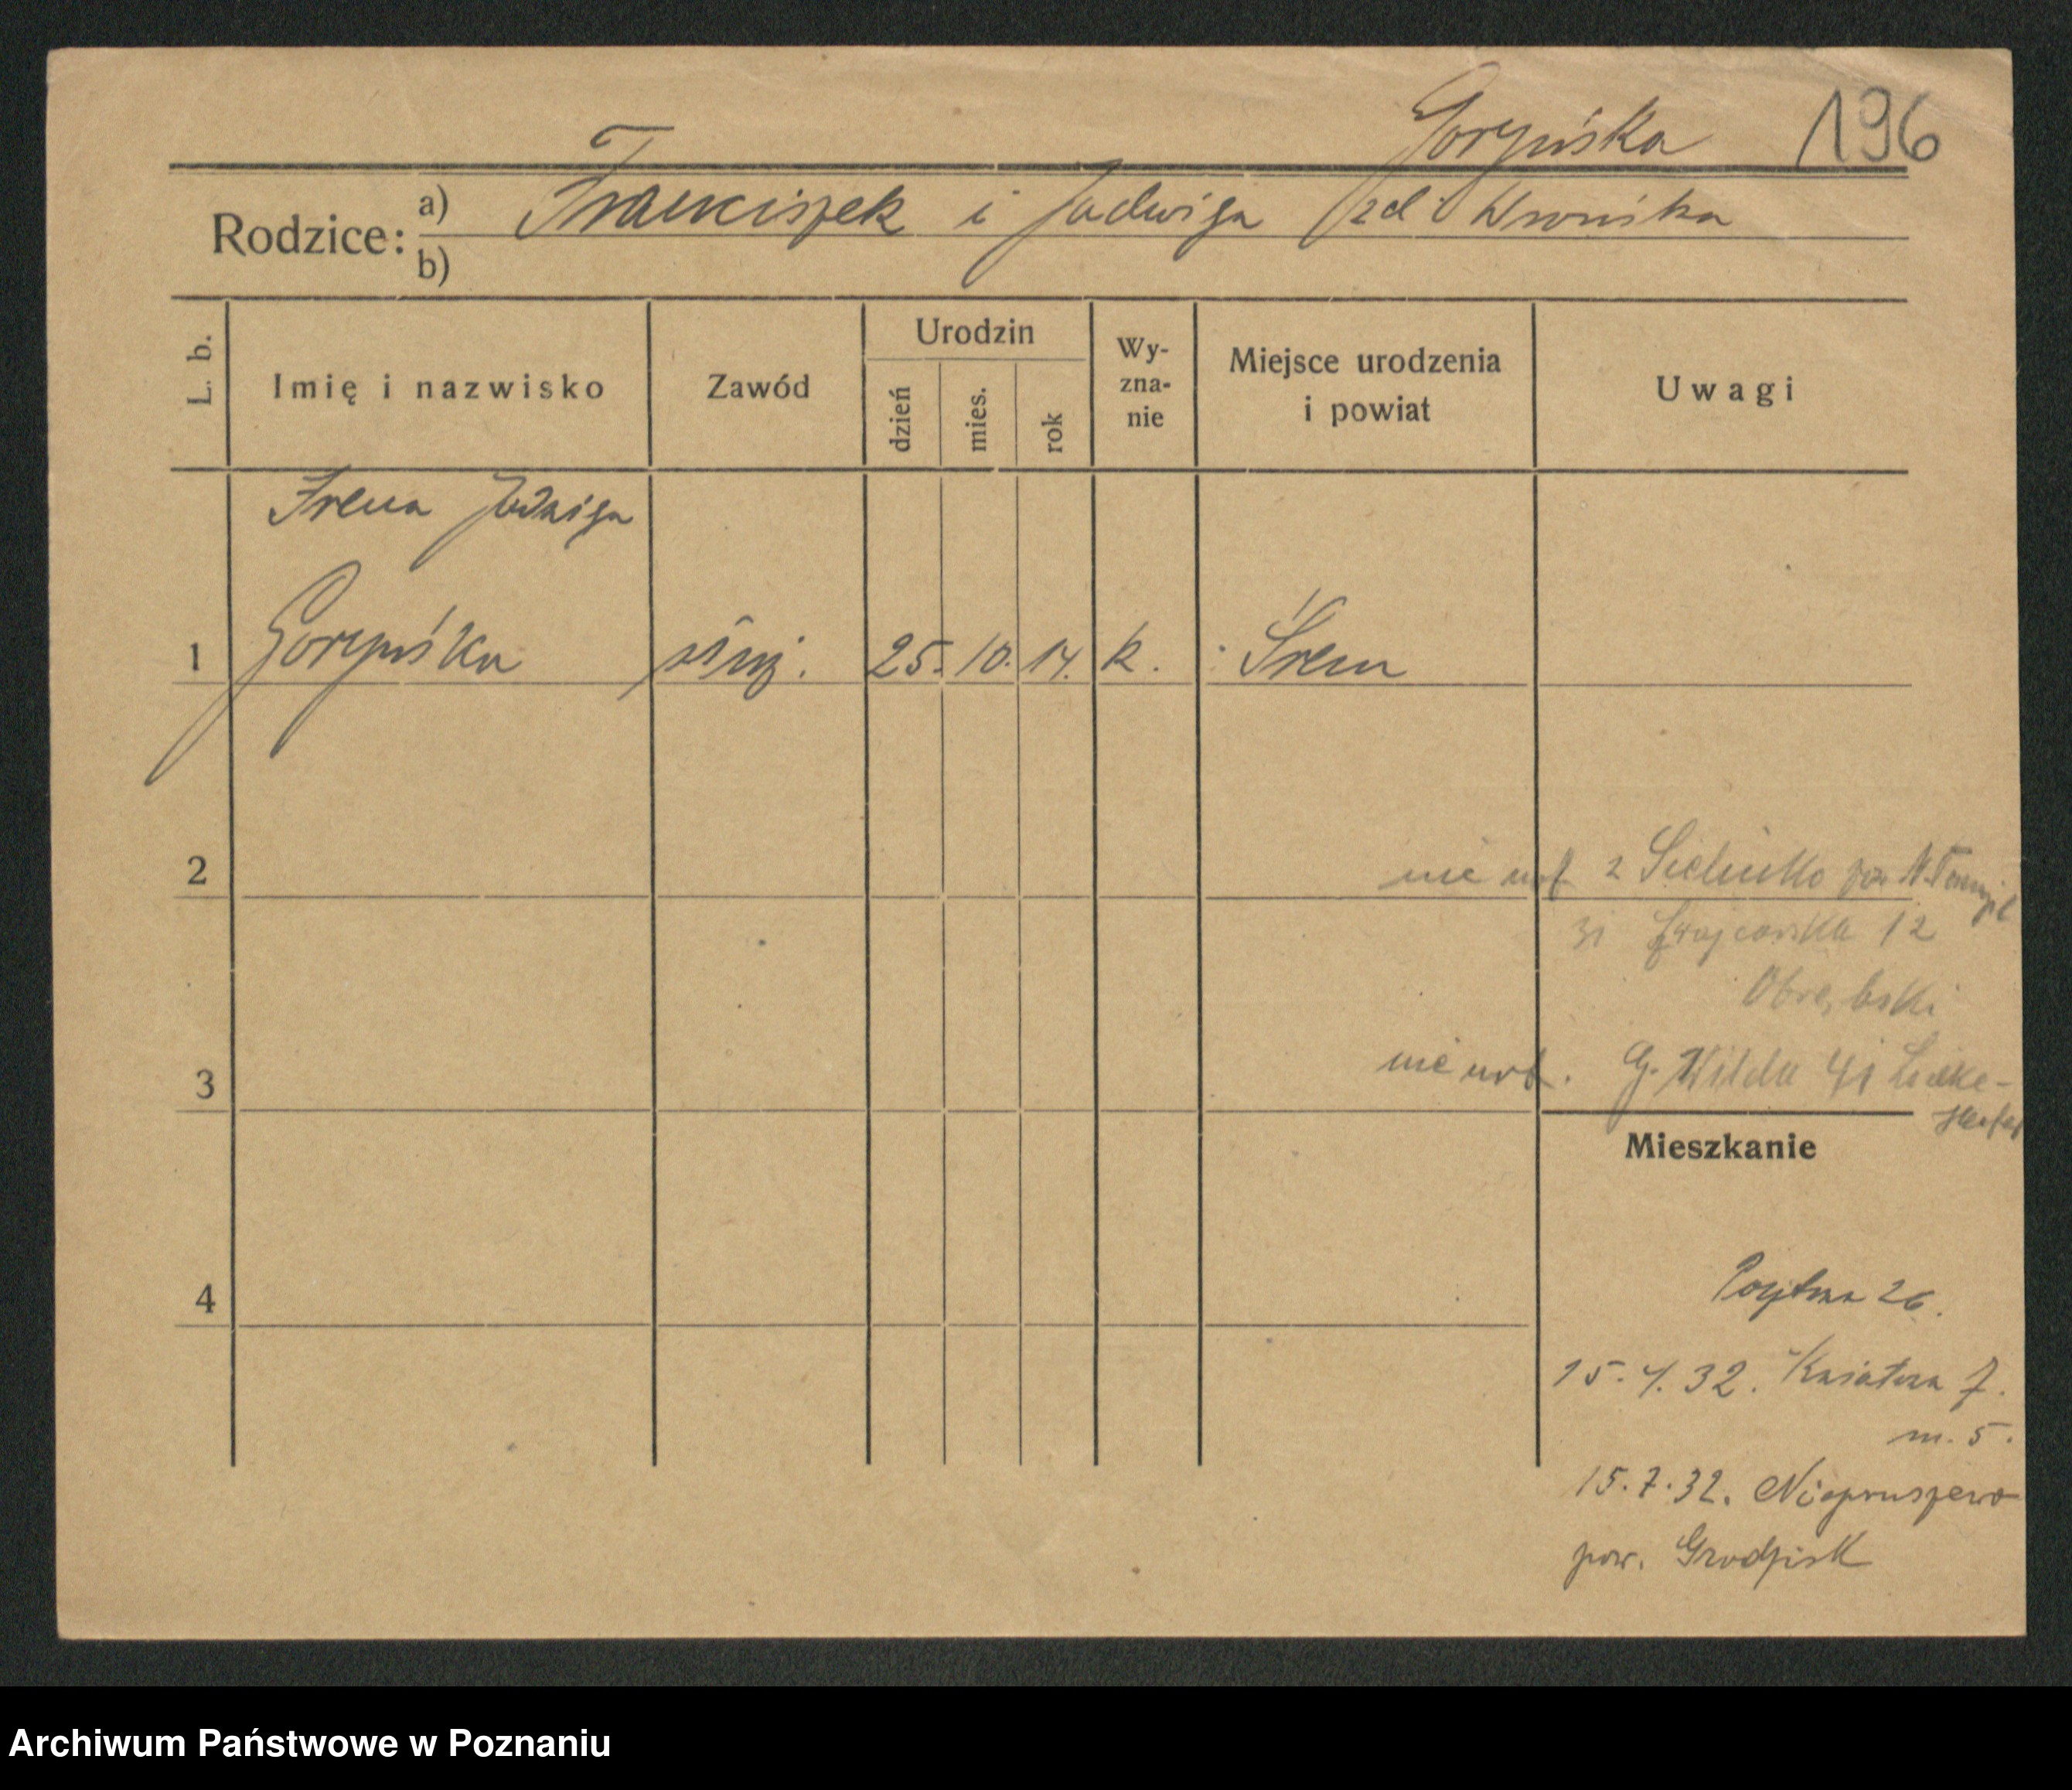 Goryńska 196
Rodzice: a) Franciszek i Jadwiga zd. Wrońska
b)
L. b.
Imię i nazwisko
Zawód
Urodzin
dzień
mies.
rok
Wy-
zna-
nie
Miejsce urodzenia
i powiat
Uwagi
Irena Jadwiga
1 Goryńska służ. 25. 10. 14. k. Śrem
2 nie urt z Sielinko
31 12
Obrębski
3 nie urt. G. Wilda 41
Mieszkanie
4
26.
15. 4. 32. Kwiatowa 7.
m. 5.
15. 7. 32. Niepruszewo
pow. Grodzisk
Archiwum Państwowe w Poznaniu